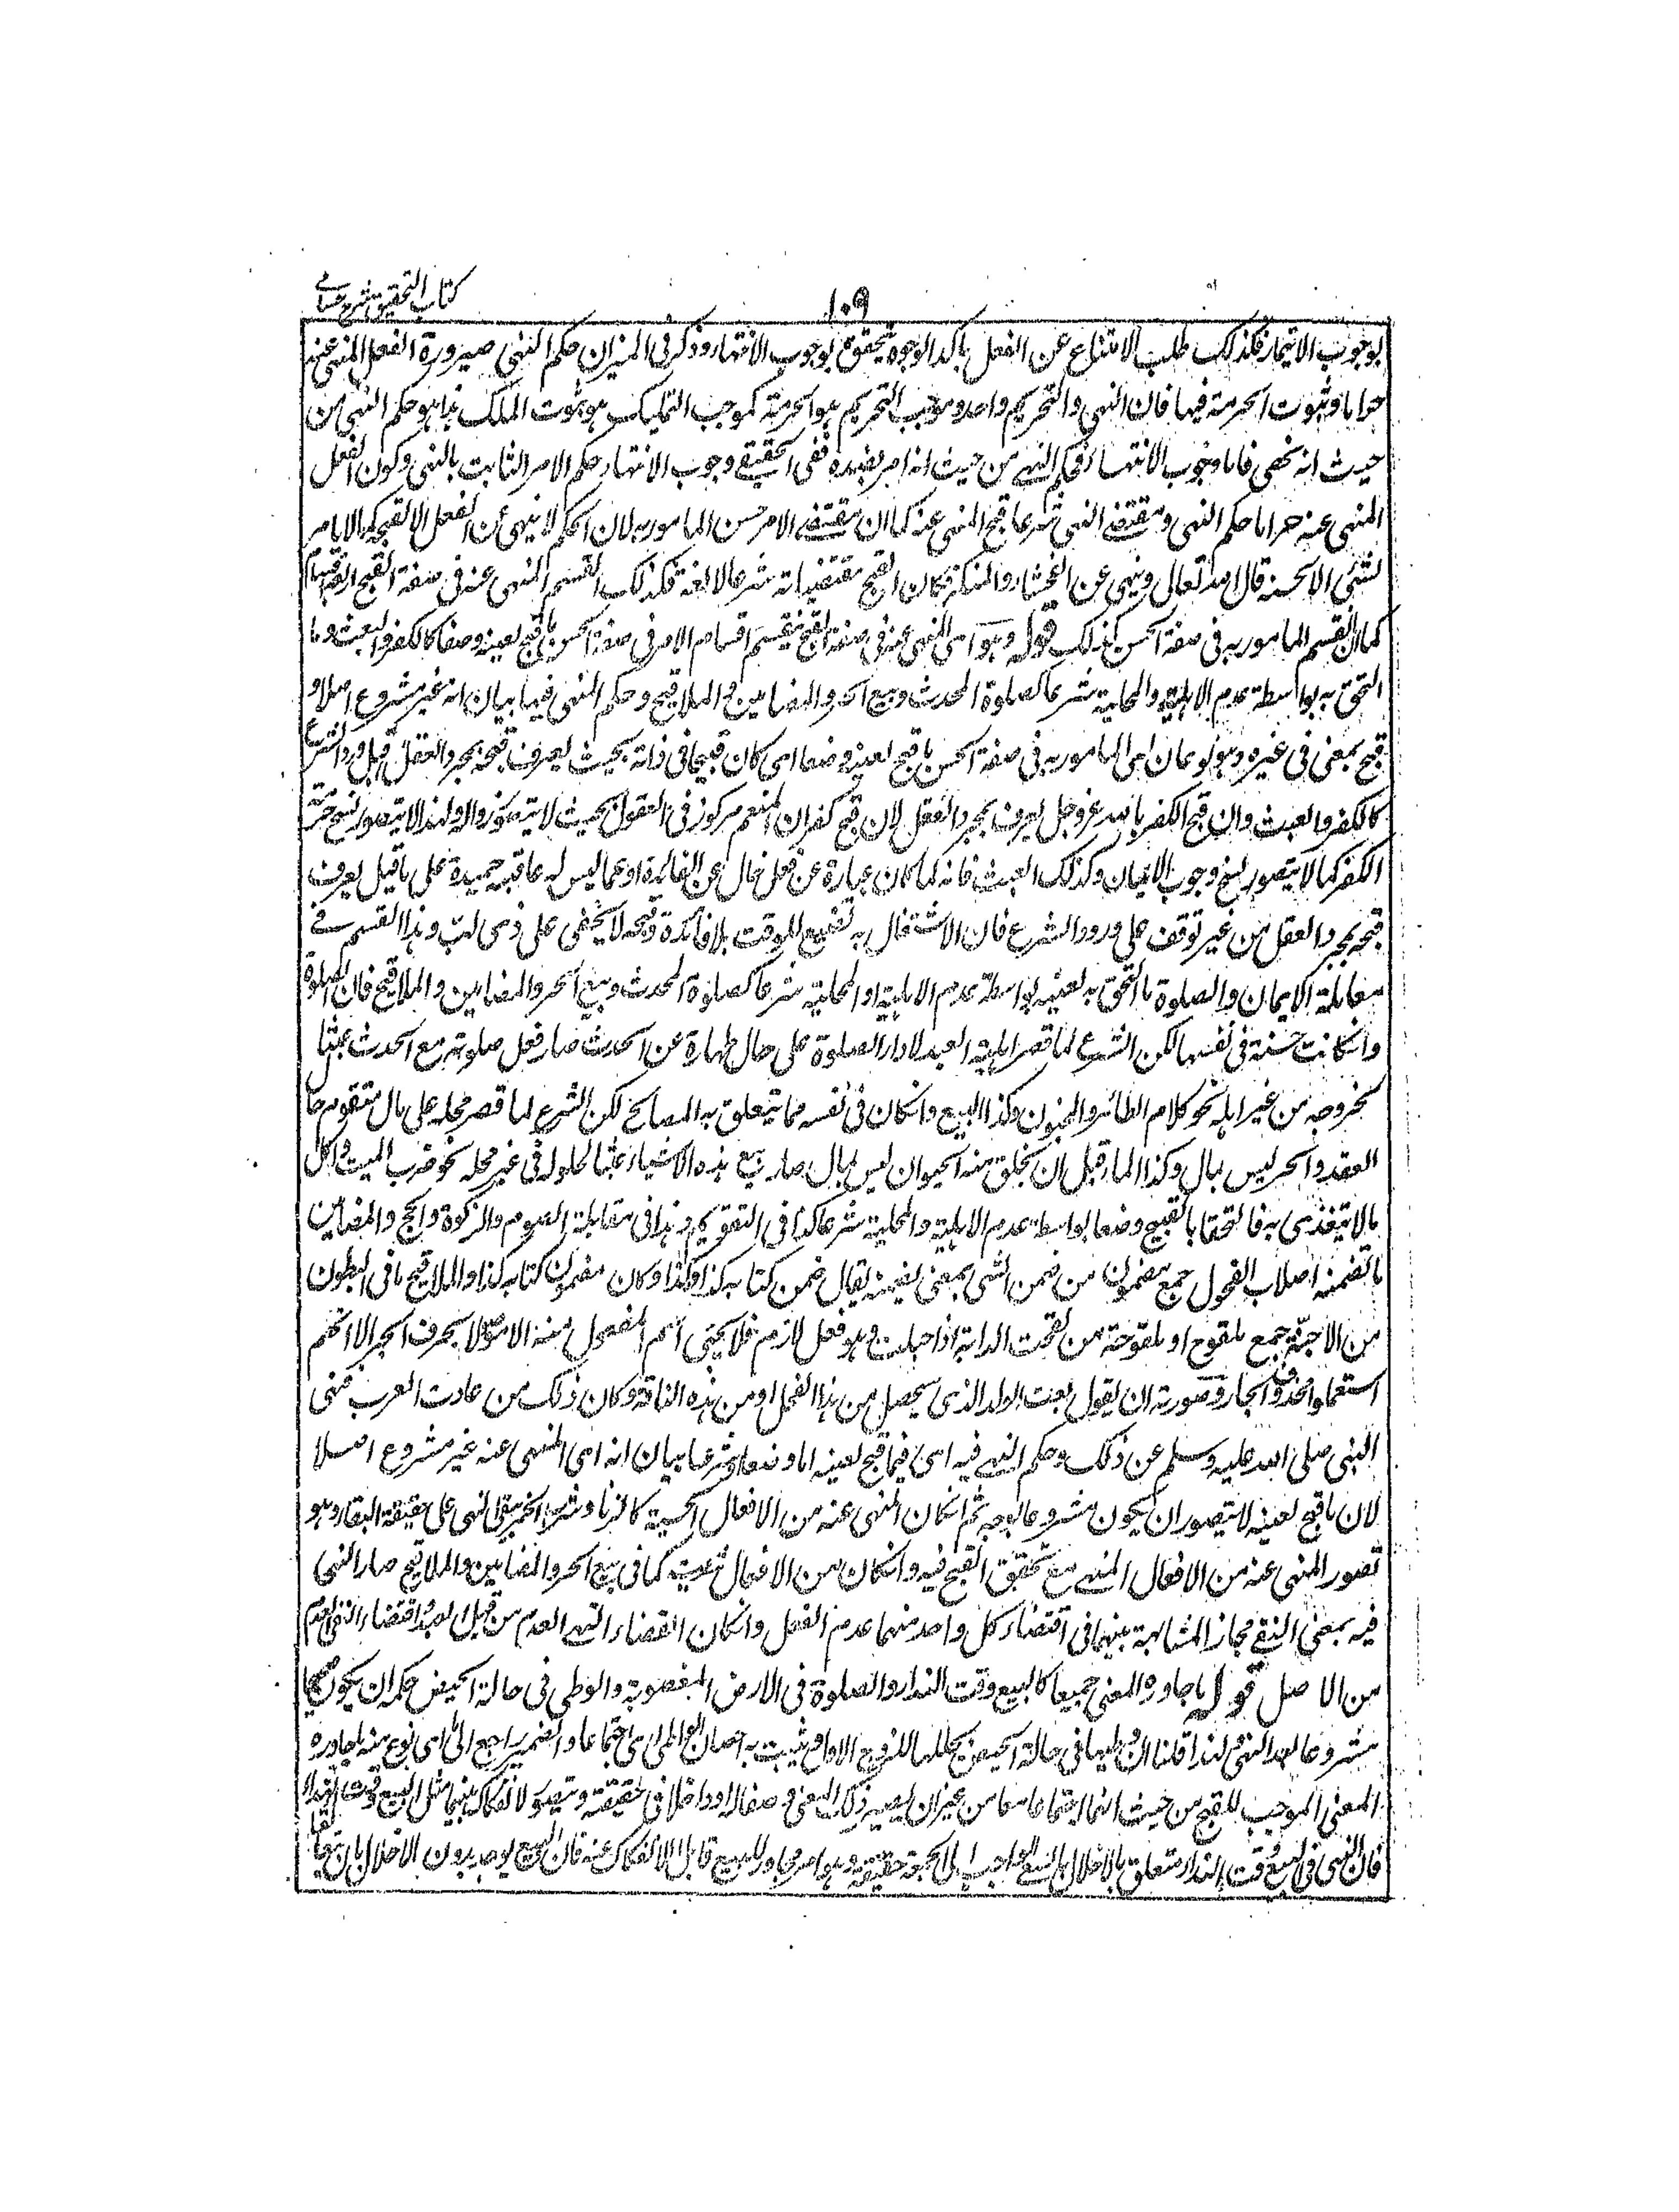 كتاب التحقيق شرح حسامے
١٠٩
بوجوب الايتمار فكذلك طلب الامتناع عن الفعل باكد الوجوه يتحقق بوجوب الانتهاء وذكر فى الميزان حكم النهى صيرورة الفعل المنهى عنه
حراما وثبوت الحرمة فيها فان النهى والتحريم واحد وموجب التحريم هو الحرمة كموجب التمليك هو ثبوت الملك هذا هو حكم النهى من
حيث انه نهى فاما وجوب الانتهاء فحكم النهے من حيث انه امر بضده ففى الحقيقة وجوب الانتهاء حكم الامر الثابت بالنهى وكون الفعل
المنهى عنه حراما حكم النهى ومقتضے النهى شرعا قبح المنهى عنه كما ان مقتضے الامر حسن المامور به لان الحكم لا ينهى عن الفعل الا لقبحه كما لا يامر
بشئ الا لحسنه قال الله تعالى وينهى عن الفحشاء والمنكر فكان القبح مقتضياته شرعا لا لغة فكذلك القسم المنهى عنه فى صفة القبح
كما انقسم المامور به فى صفة الحسن كذلك قوله وهو اى المنهى عنه فى صفة القبح ينقسم انقسام الامر فى صفة الحسن ما قبح لعينه وضعا كالكفر والعبث وما
التحق به بواسطة عدم الاهلية والمحلية شرعا كصلوة المحدث وبيع الحر والمضامين والملاقيح وحكم النهى فيهما بيان انه غير مشروع اصلا و
قبح بمعنى فى غيره وهو نوعان اى المامور به فى صفة الحسن ما قبح لعينه وضعا اى كان قبيحا فى ذاته بحيث يعرف قبحه بمجرد العقل قبل ورود الشرع
كالكفر والعبث وان قبح الكفر بالله عز وجل يعرف بمجرد العقل لان قبح كفران المنعم مركوز فى العقول بحيث لا يتصور زواله ولهذا لا يتصور نسخ حرمة
الكفر كما لا يتصور نسخ وجوب الايمان وكذلك العبث فانه لما كان عبارة عن فعل خال عن الفائدة او عما ليس له عاقبة حميدة على ما قيل يعرف
قبحه بمجرد العقل من غير توقف على ورود الشرع فان الاشتغال به تضييع للوقت بلا فائدة وقبحه لا يخفى على ذى لب وهذا القسم فے
مقابلة الايمان والصلوة ما التحق به لعينه بواسطة عدم الاهلية او المحلية شرعا كصلوة المحدث وبيع الحر والمضامين والملاقيح فان الصلوة
وانكانت حسنة فى نفسها لكن الشرع لما قصر اهلية العبد لاداء الصلوة على حال طهارة عن الحدث صار فعل صلوته مع الحدث عبثا
لخروجه من غير اهله نحو كلام الطائر والمجنون وكذا البيع وانكان فى نفسه مما يتعلق به المصالح لكن الشرع لما قصر محله على مال متقوم حا
العقد والحر ليس بمال وكذا الماء قبل ان يخلق منه الحيوان ليس بمال صار بيع هذه الاشياء عبثا لحلوله فى غير محله نحو ضرب الميت واكل
مالا يتغذى به فالتحقا بالقبيح وضعا بواسطة عدم الاهلية والمحلية شرعا كذا فى التقويم وهذا فى مقابلة الصوم والزكوة والحج والمضامين
ما تضمنه اصلاب الفحول جمع مضمون من ضمن الشى بمعنى تضمنه يقال ضمن كتابه كذا وكذا وكان مضمون كتابه كذا والملاقيح ما فى البطون
من الاجنة جمع ملقوح او ملقوحة من لقحت الدابة اذا حبلت وهو فعل لازم فلا يجئ اسم المفعول منه الا موصولا بحرف الجر الا انهم
استعملوا محذوف الجار وصورته ان يقول بعت الولد الذى سيحصل من هذا الفحل او من هذه الناقة وكان ذلك من عادت العرب فنهى
النبى صلى الله عليه وسلم عن ذلك وحكم النهے فيه اى فيما قبح لعينه اما وضعا او شرعا بيان انه اى المنهى عنه غير مشروع اصلا
لان ما قبح لعينه لا يتصور ان يكون مشروعا بوجه ثم انكان المنهى عنه من الافعال الحسية كالزناء وشرب الخمر يبقى النهى على حقيقة البقاء وهو
تصور المنهى عنه من الافعال المنهے مع تحقق القبح فيه وانكان من الافعال شرعية كما فى بيع الحر والمضامين والملاقيح صار النهى
فيه بمعنى النفے مجازا لمشابهة بينهما فى اقتضاء كل واحد منهما عدم الفعل وانكان اقتضاء النهے العدم من قبل العبد واقتضاء النفى العدم
من الاصل قوله ما جاوره المعنى جميعا كالبيع وقت النداء والصلوة فى الارض المغصوبة والوطى فى حالة الحيض حكمه ان يكون صحيحا
مشروعا بعد النهى ولهذا قلنا ان وطيها فى حالة الحيض يحللها للزوج الاول ويثبت به احصان الواطى اى اجتماعا والضمير راجع الى ما اى نوع منه ما جاوره
المعنى الموجب للقبح من حيث انهما اجتماعا معا من غير ان يصير ذلك المعنى وصفا له او داخلا فى حقيقته ويتصور الانفكاك بينهما مثل البيع وقت النداء
فان النهى فى البيع وقت النداء متعلق بالاخلال بالسعى الواجب الى الجمعة حقيقة وهو امر مجاور للبيع قابل الانفكاك عنه فان البيع يوجد بدون الاخلال بان يتبايعا